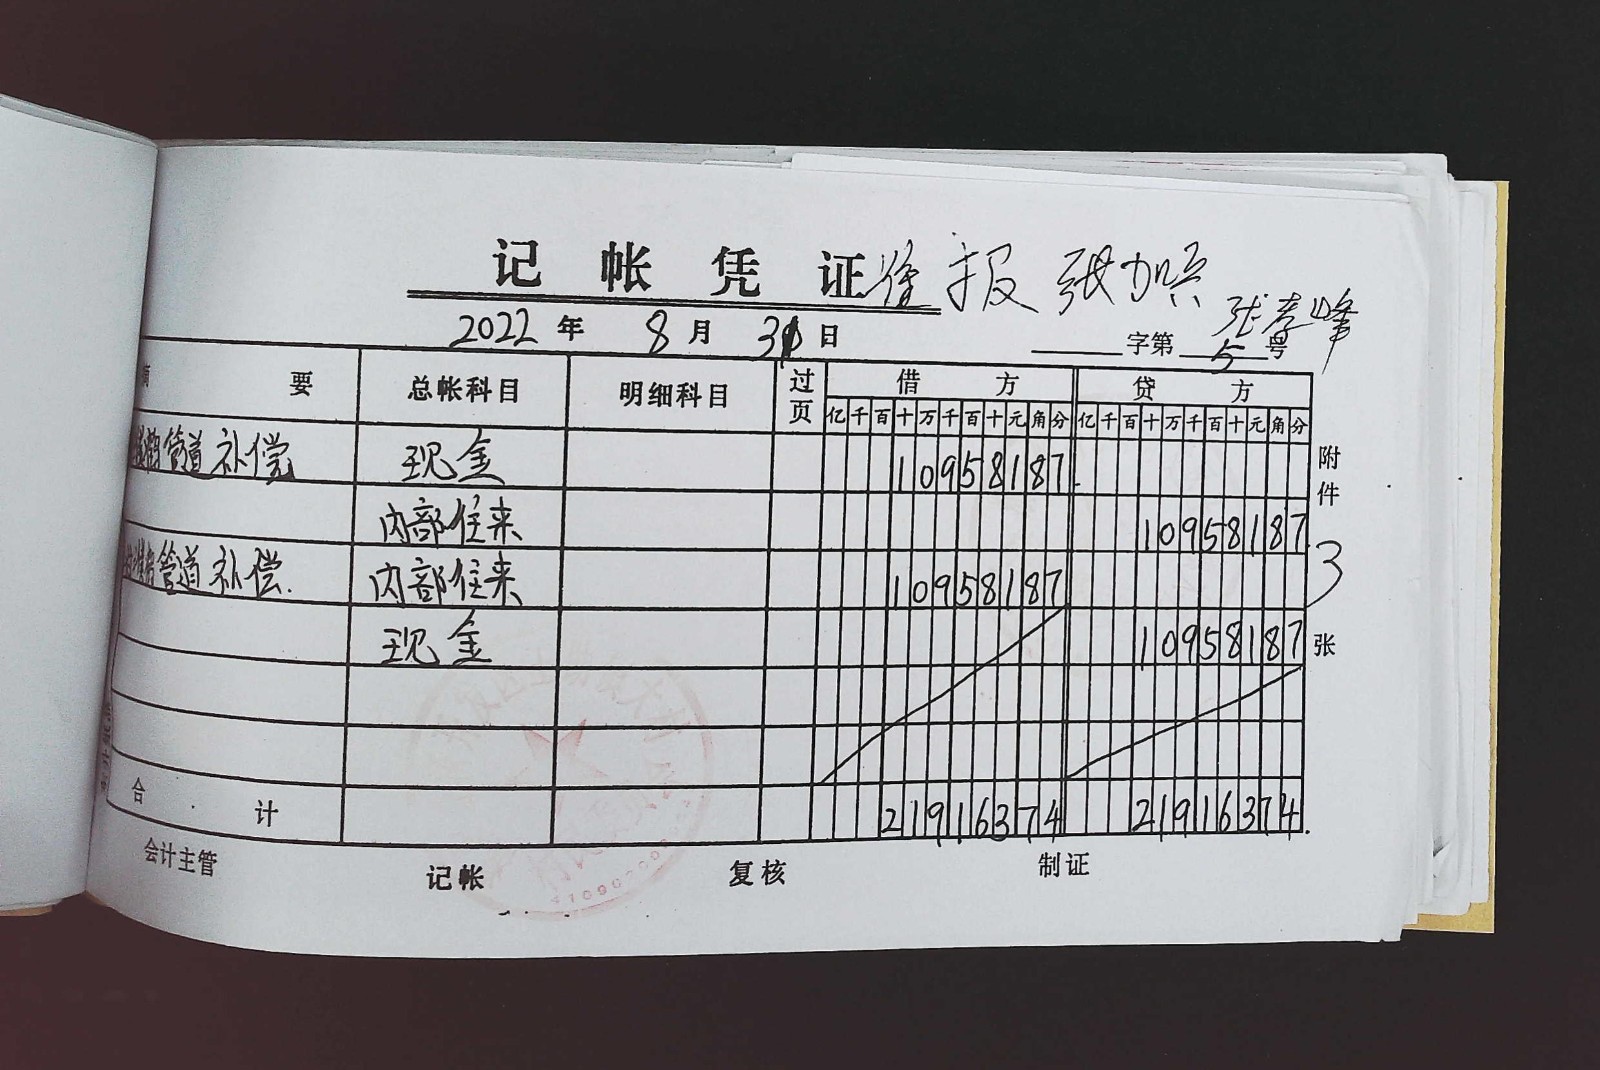 记帐凭证 准报 张加兵
张孝峰
2022年8月31日 字第5号
摘要 总帐科目 明细科目 过页 借方 贷方
亿千百十万千百十元角分 亿千百十万千百十元角分
管道补偿 现金 10958187
内部往来 10958187
管道补偿. 内部往来 10958187
现金 10958187
合计 21916374 21916374.
附件3张
会计主管 记帐 复核 制证